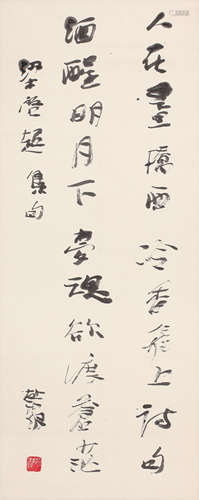 人在畫橋西 冷香飛上詩句
酒醒明月下 夢魂欲渡蒼茫
梁啓超集句